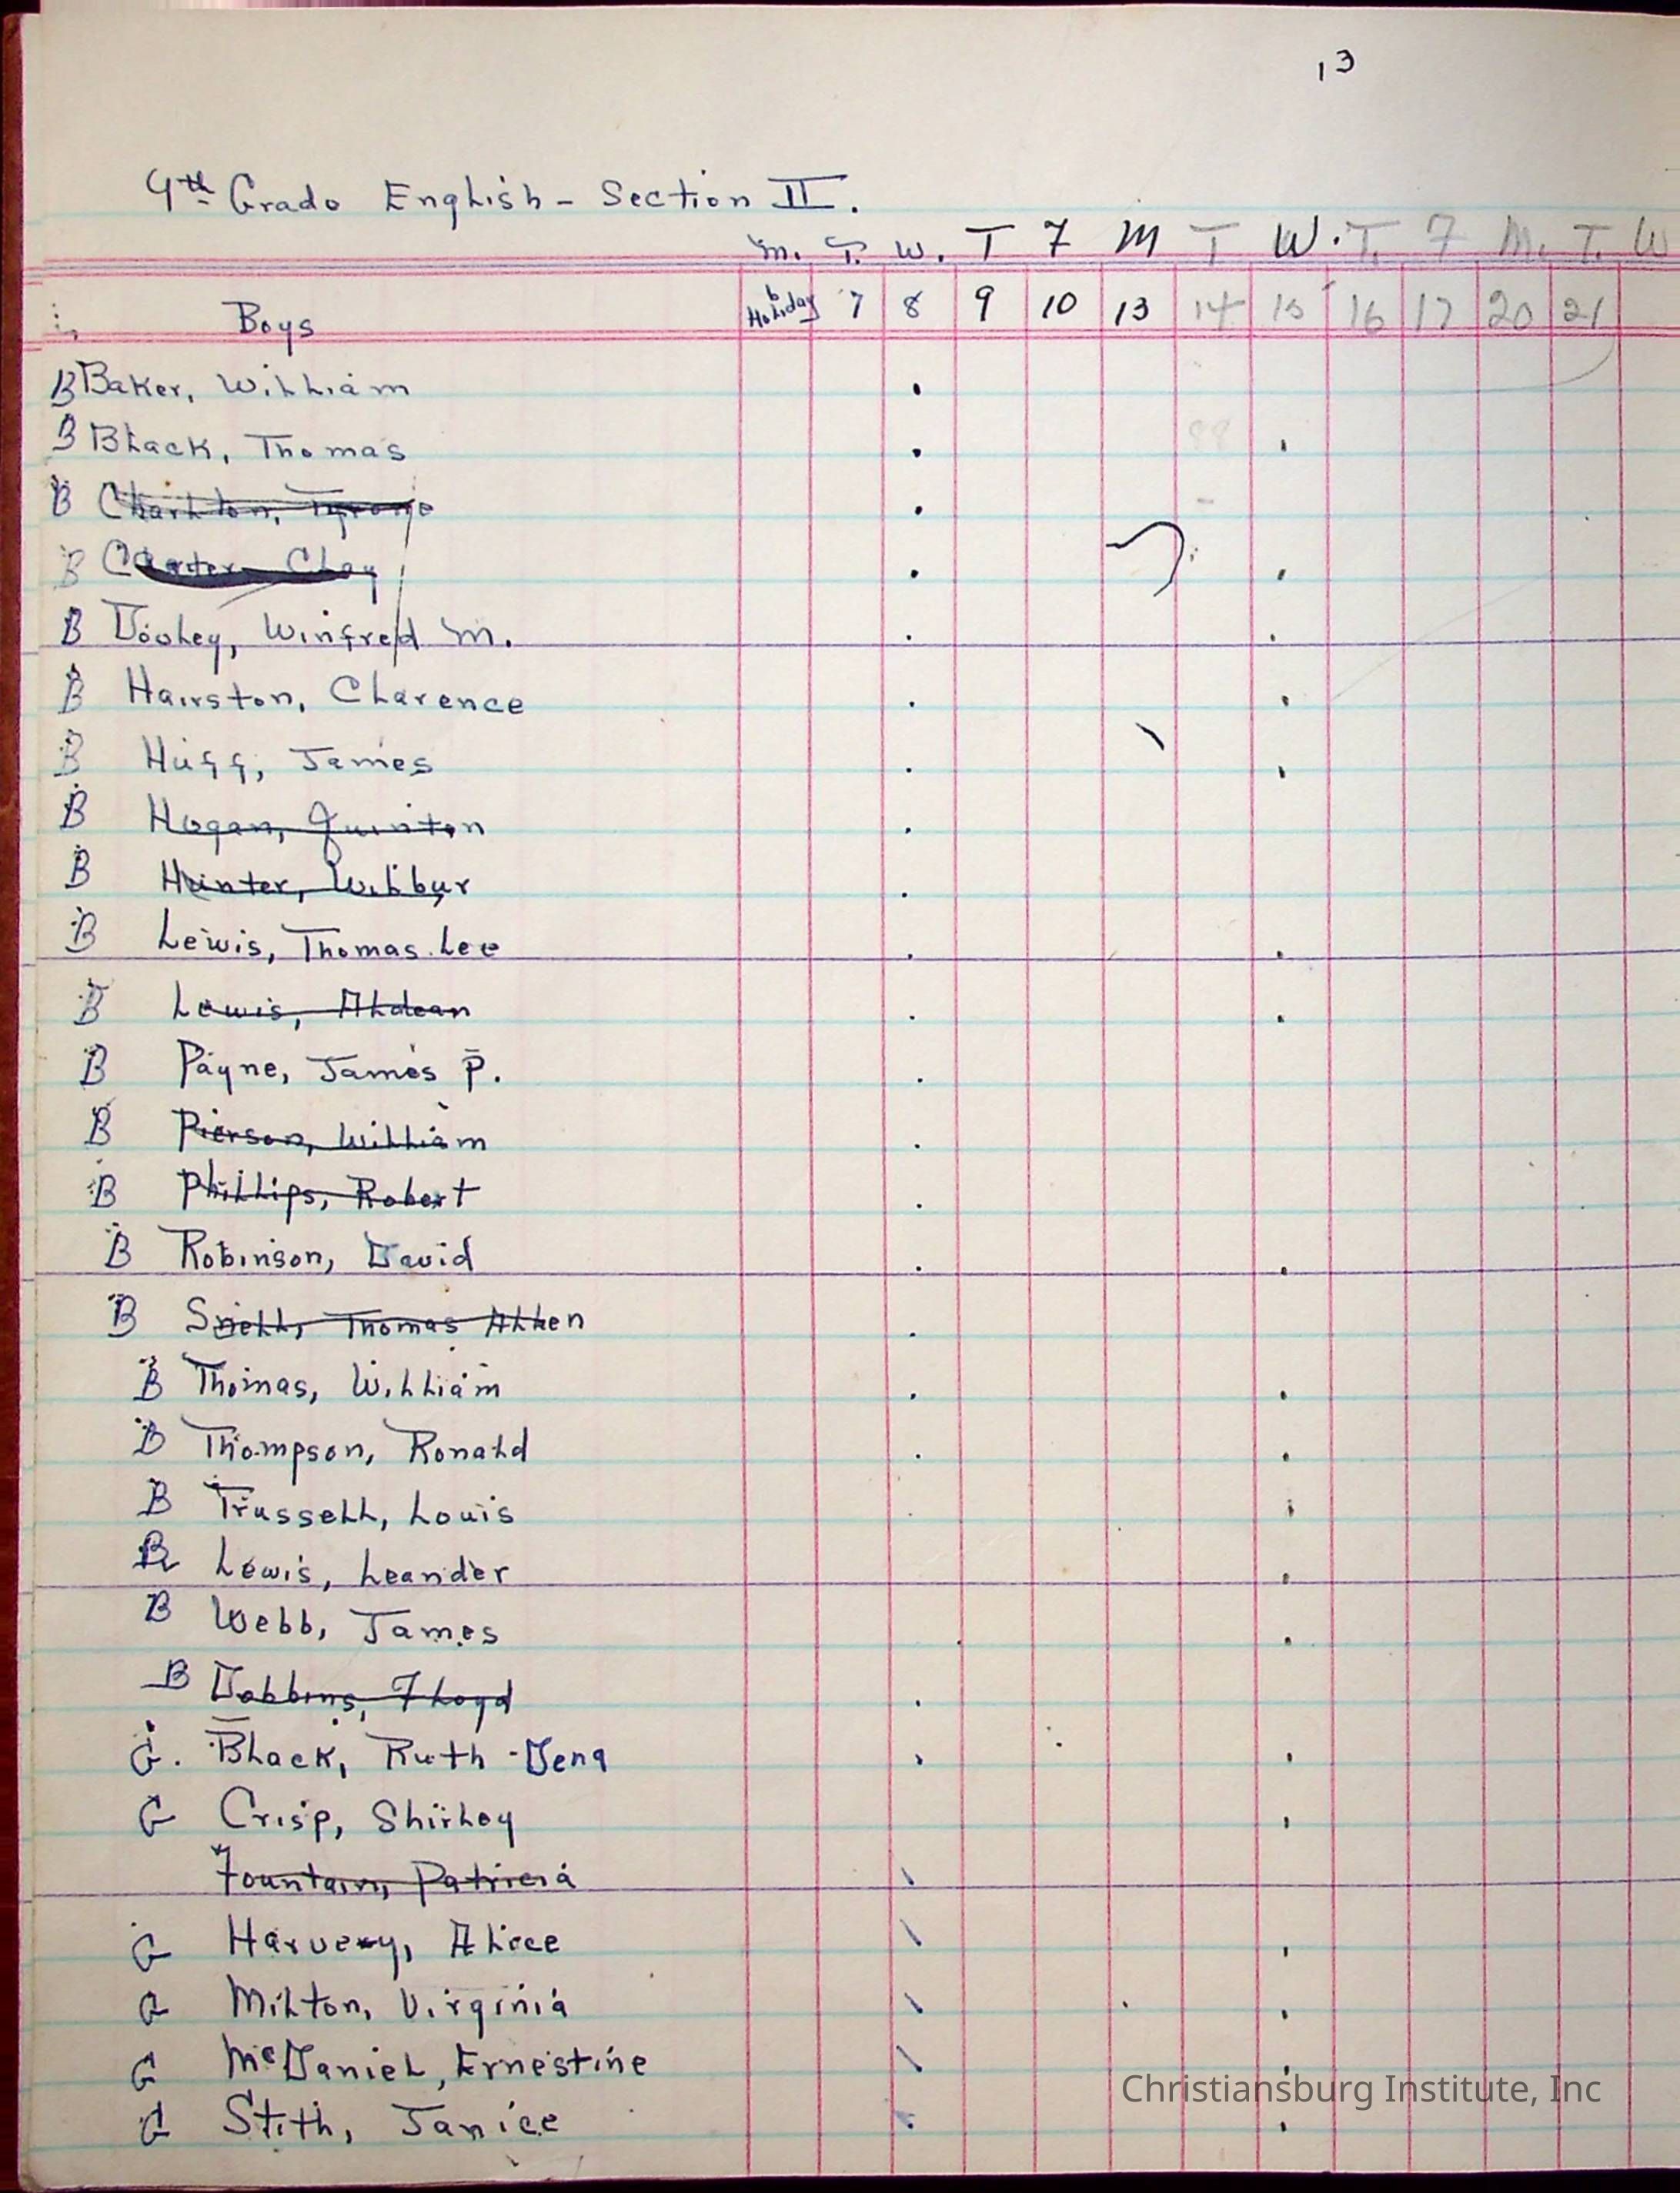 13
9th Grade English - Section II.
M. T. W. T F M T W. T. F M. T. W
Boys 6 Holiday 7 8 9 10 13 14 15 16 17 20 21
B Baker, William
B Black, Thomas
B Charlton, Tyrone
B Carter, Clay
B Dooley, Winfred M.
B Hairston, Clarence
B Huff, James
B Hogan, Quinton
B Hunter, Wilbur
B Lewis, Thomas Lee
B Lewis, Aldean
B Payne, James P.
B Pierson, William
B Phillips, Robert
B Robinson, David
B Snell, Thomas Allen
B Thomas, William
B Thompson, Ronald
B Trussell, Louis
B Lewis, Leander
B Webb, James
B Dobbins, Floyd
G. Black, Ruth-Dena
G Crisp, Shirley
Fountain, Patricia
G Harvey, Alice
G Milton, Virginia
G McDaniel, Ernestine
G Stith, Janice
Christiansburg Institute, Inc